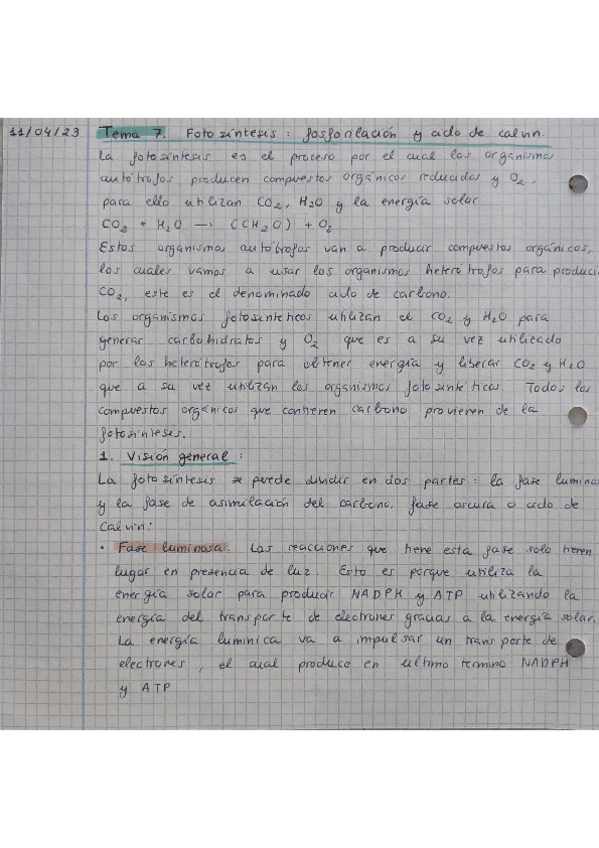 11/04/23 Tema 7. Fotosíntesis: fosforilación y ciclo de calvin.
La fotosíntesis es el proceso por el cual los organismos
autótrofos producen compuestos orgánicos reducidos y O₂,
para ello utilizan CO₂, H₂O y la energía solar
CO₂ + H₂O → (CH₂O) + O₂
Estos organismos autótrofos van a producir compuestos orgánicos,
los cuales vamos a usar los organismos heterótrofos para produci
CO₂, este es el denominado ciclo de carbono.
Los organismos fotosintéticos utilizan el CO₂ y H₂O para
generar carbohidratos y O₂ que es a su vez utilizado
por los heterótrofos para obtener energía y liberar CO₂ y H₂O
que a su vez utilizan los organismos fotosintéticos. Todos los
compuestos orgánicos que contienen carbono provienen de la
fotosíntesis.
1. Visión general:
La fotosíntesis se puede dividir en dos partes: la fase lumino
y la fase de asimilación del carbono, fase oscura o ciclo de
Calvin:
• Fase luminosa. Las reacciones que tiene esta fase solo tienen
lugar en presencia de luz. Esto es porque utiliza la
energía solar para producir NADPH y ATP utilizando la
energía del transporte de electrones gracias a la energía solar.
La energía lumínica va a impulsar un transporte de
electrones, el cual produce en último término NADPH
y ATP